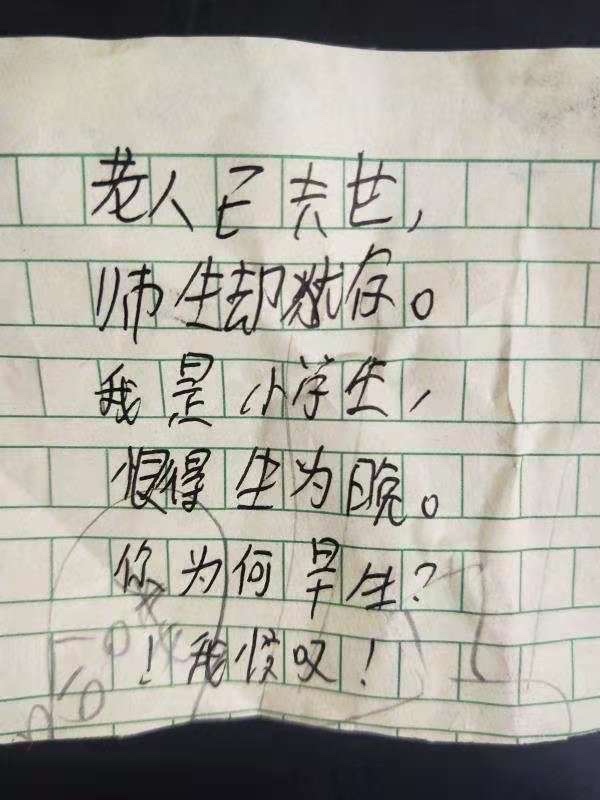 老人已去世，
师生却犹存。
我是小学生，
恨得生为晚。
你为何早生？
！我惊叹！